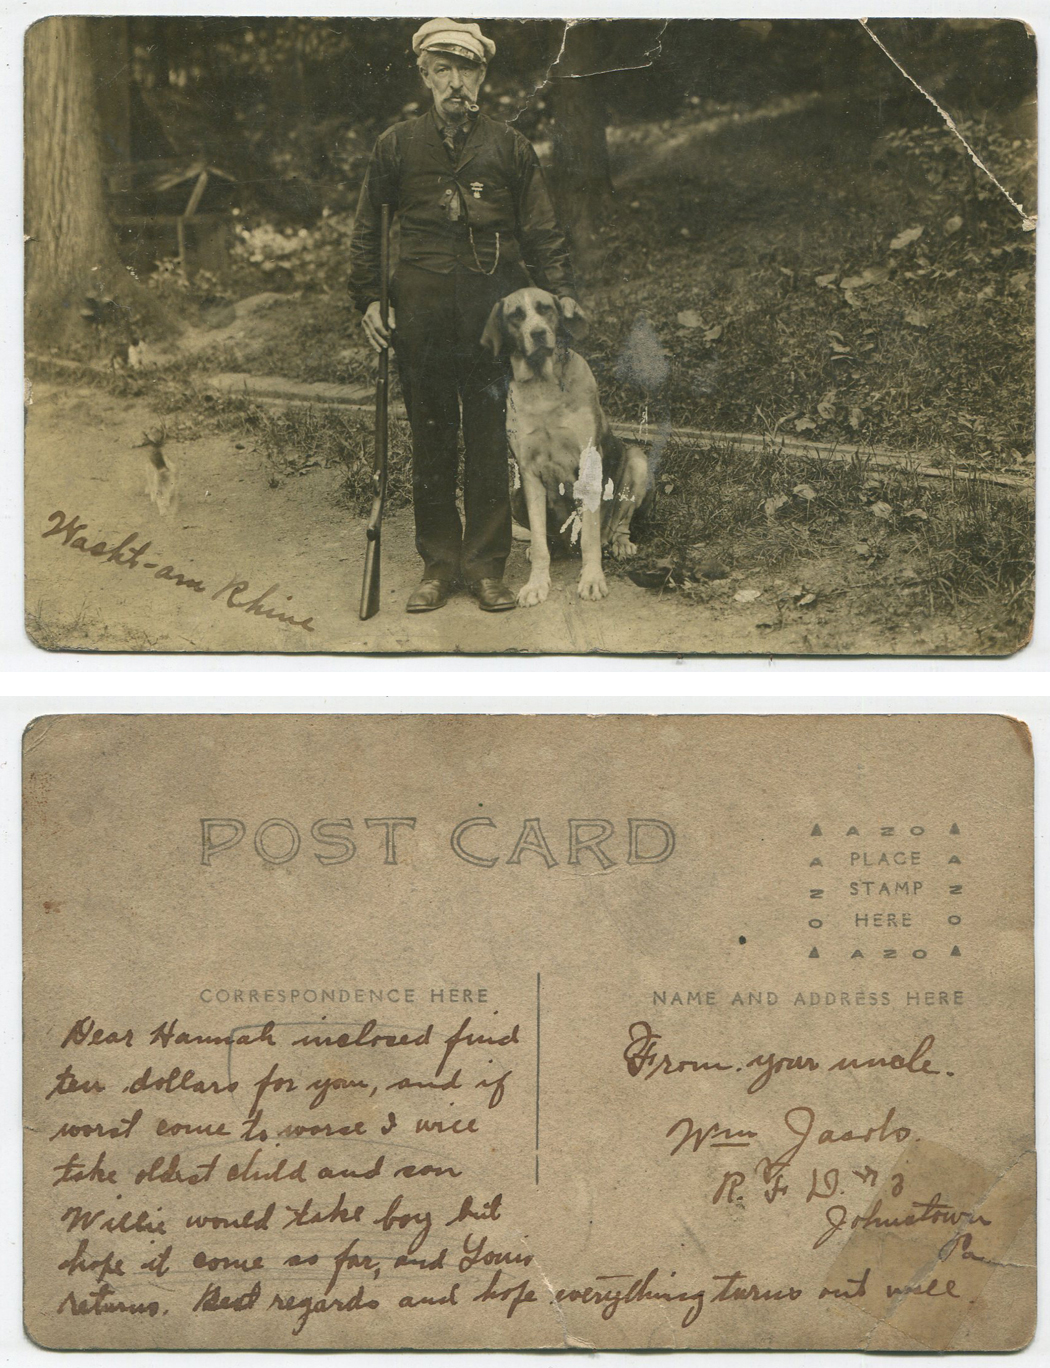 Wacht-am Rhine
POST CARD
AZO
PLACE
STAMP
HERE
AZO
CORRESPONDENCE HERE
NAME AND ADDRESS HERE
Dear Hannah inclosed find
ten dollars for you, and if
worst come to worse I will
take oldest child and son
Willie would take boy but
hope it come so far, and Louis
returns. Best regards and hope everything turns out well.
From your uncle.
Wm Jacobs.
R. F. D. No 3
Johnstown
Pa